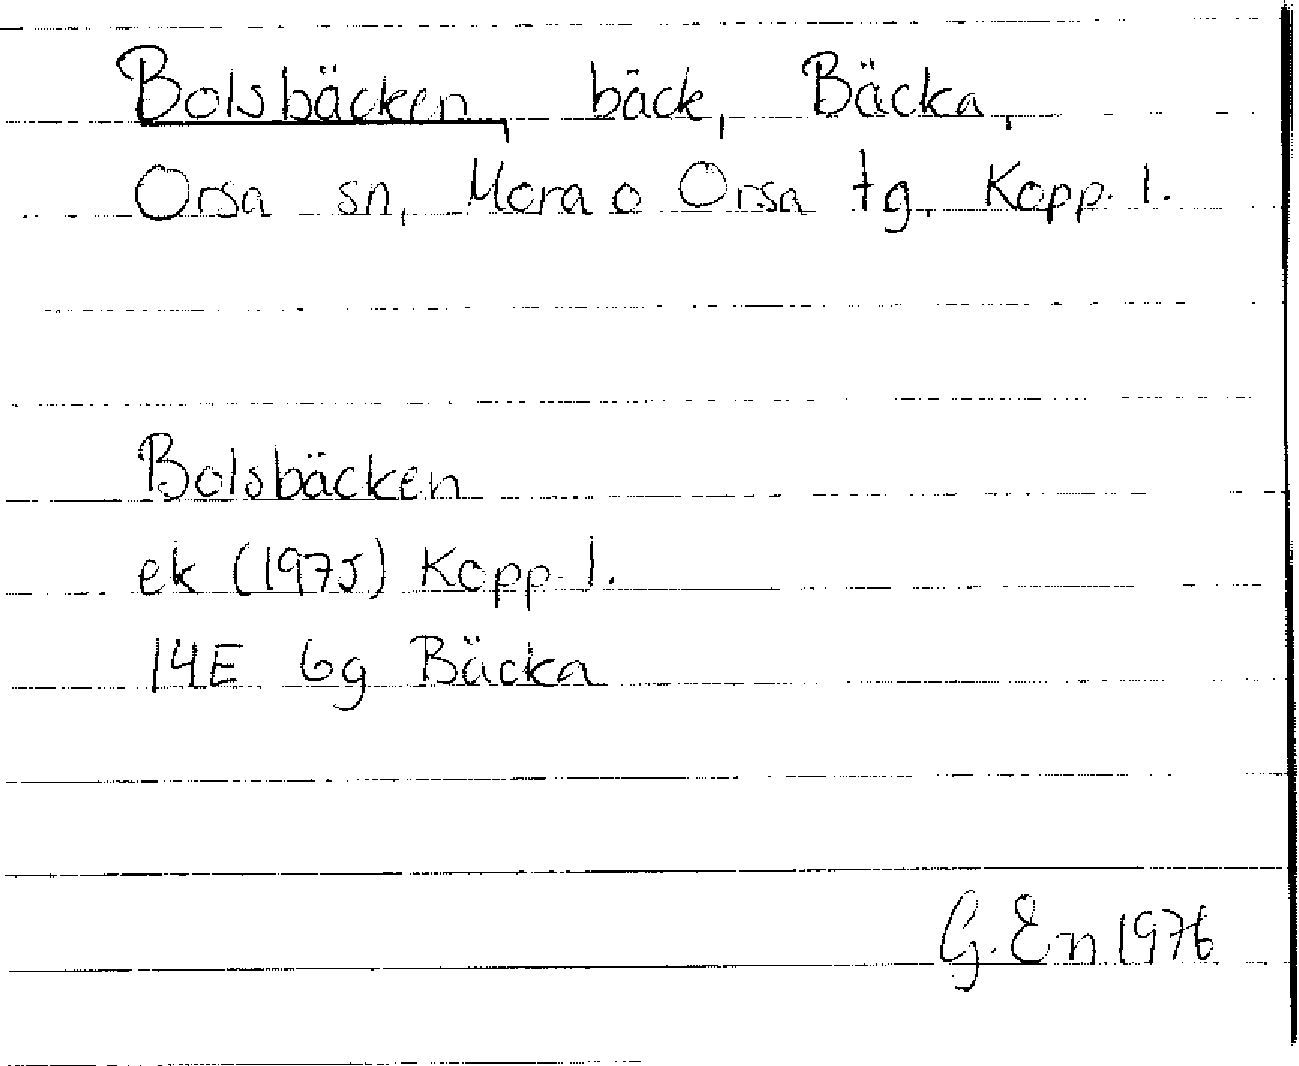 Bolsbäcken, bäck, Bäcka,
Orsa sn, Mora o Orsa tg, Kopp. l.
Bolsbäcken
ek (1975) Kopp. l.
14E 6g Bäcka
G. En 1976